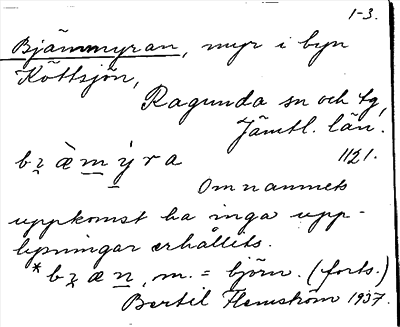 1-3.
Bjämmyran, myr i byn
Köttsjön,
Ragunda sn och tg,
Jämtl. län.
bʒ̀æm̲ỳra 1121.
Om namnets
uppkomst ha inga upp-
lysningar erhållits.
*bʒæn̲, m. = björn. (forts.)
Bertil Flemström 1937.